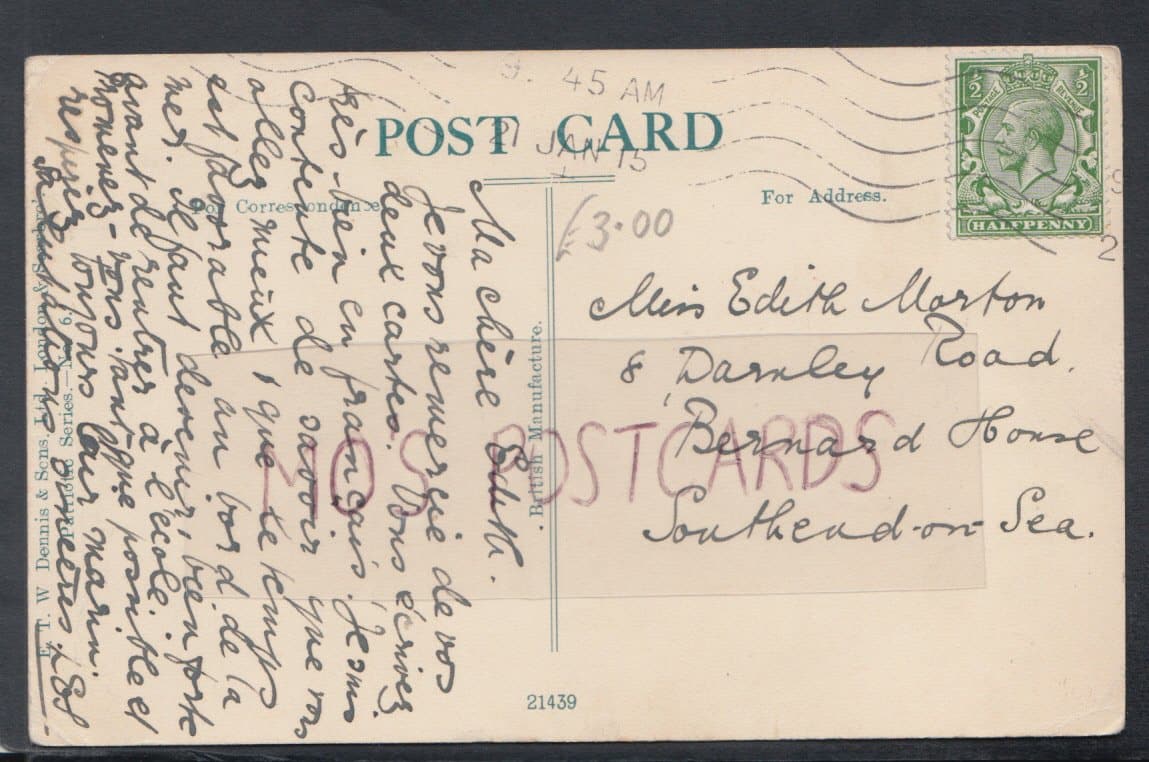 9. 45 AM
21 JAN 15
POST CARD
For Correspondence.
For Address.
½ ½
POSTAGE REVENUE
HALFPENNY
£3.00
Ma chère Edith.
Je vous remercie de vos
deux cartes. Vous écrivez
très bien en français. Je suis
contente de savoir que vous
allez mieux & que le temps
est favorable au bord de la
mer. Il faut devenir bien forte
avant de rentrer à l'école.
Promenez-vous tant que possible et
respirez toujours l'air marin.
Salutations sincères.
Miss Edith Marton
8 Darnley Road.
Bernard House
Southend-on-Sea.
MOS POSTCARDS
British Manufacture.
E. T. W Dennis & Sons, Ltd. London & Scarboro'.
Patriotic Series.—No 6.
21439